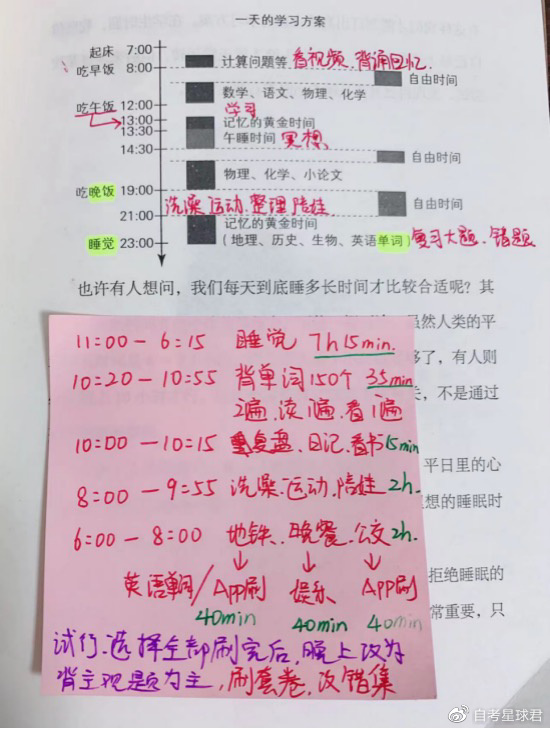 一天的学习方案
起床 7:00
吃早饭 8:00
计算问题等 看视频、背诵回忆
自由时间
数学、语文、物理、化学
学习
吃午饭 12:00
13:00
记忆的黄金时间
13:30
午睡时间 冥想
14:30
自由时间
物理、化学、小论文
吃晚饭 19:00
洗澡、运动、整理、陪娃
自由时间
21:00
记忆的黄金时间
睡觉 23:00
(地理、历史、生物、英语单词) 复习大题、错题
也许有人想问，我们每天到底睡多长时间才比较合适呢？其
虽然人类的平
够了，有人则
天，不是通过
平日里的心
想的睡眠时
拒绝睡眠的
常重要，只
11:00 - 6:15 睡觉 7h15min.
10:20 - 10:55 背单词150个 35min
2遍、读1遍、看1遍
10:00 - 10:15 复盘、日记、看书15min
8:00 - 9:55 洗澡、运动、陪娃 2h.
6:00 - 8:00 地铁、晚餐、公交 2h.
英语单词/App刷 娱乐 App刷
40min 40min 40min
试行、选择全部刷完后，晚上改为
背主观题为主，刷套卷，改错集
@自考星球君